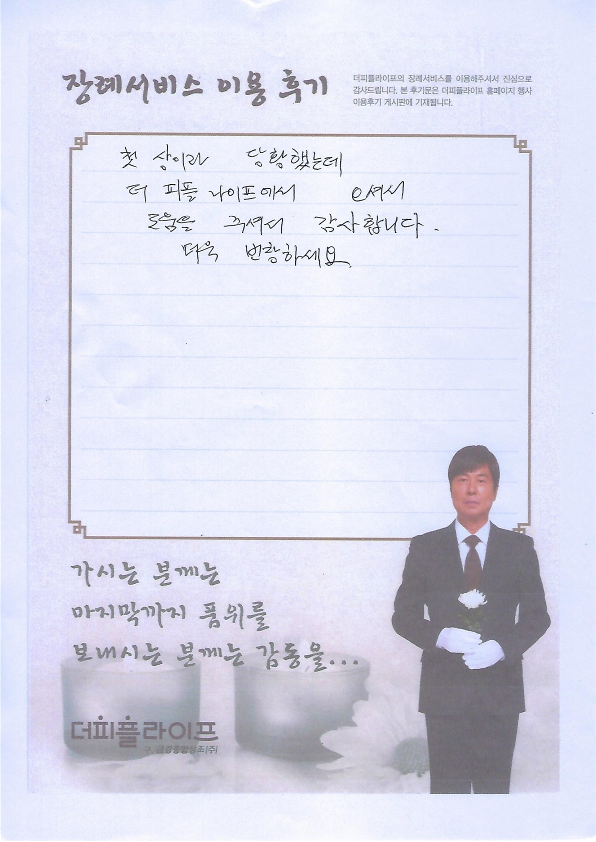 장례서비스 이용 후기
더피플라이프의 장례서비스를 이용해주셔서 진심으로
감사드립니다. 본 후기문은 더피플라이프 홈페이지 행사
이용후기 게시판에 기재됩니다.
첫 상이라 당황했는데
더 피플 라이프에서 오셔서
도움을 주셔서 감사합니다.
더욱 번창하세요
가시는 분께는
마지막까지 품위를
보내시는 분께는 감동을...
더피플라이프